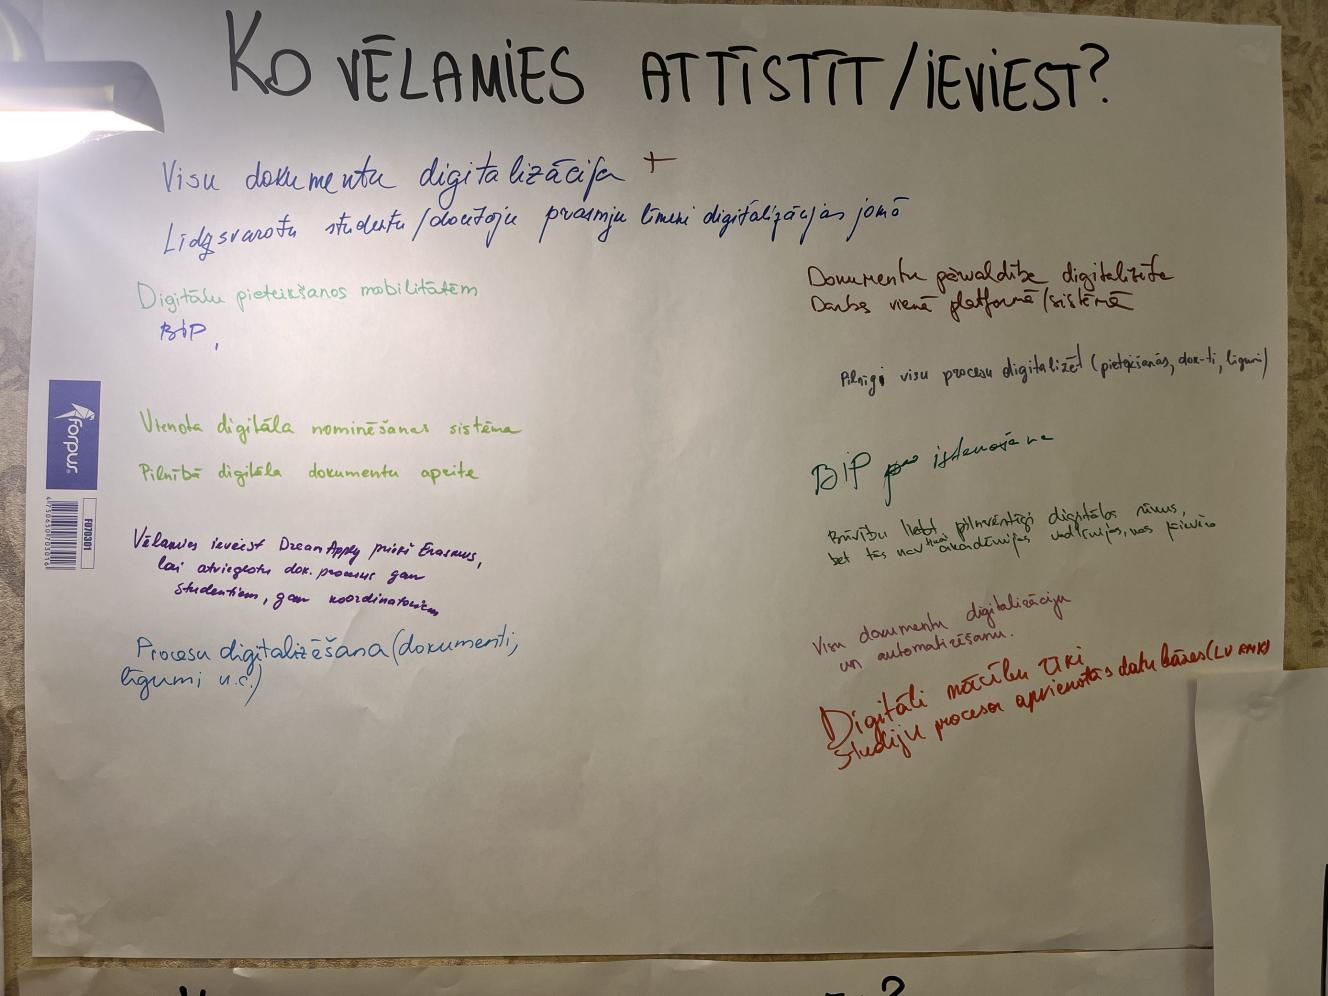 KO VĒLAMIES ATTĪSTĪT/IEVIEST?
Visu dokumentu digitalizācija +
Līdzsvarotu studentu/docētāju prasmju līmeni digitalizācijas jomā
Digitālu pieteikšanos mobilitātēm
BIP,
Vienota digitāla nominēšanas sistēma
Pilnībā digitāla dokumentu aprite
Vēlamies ieviest DreamApply priekš Erasmus,
lai atvieglotu dok. procesus gan
studentiem, gan koordinatoriem
Procesu digitalizēšana (dokumenti,
līgumi u.c.)
Dokumentu pārvaldība digitalizēta
Darbs vienā platformā/sistēmā
Pilnīgi visu procesu digitalizēt (pieteikšanās, dok-ti, līgumi)
BIP īstenošana
Brīvību lietot pilnvērtīgi digitālos rīkus,
bet tas nav akadēmijas
Visu dokumentu digitalizāciju
un automatizēšanu.
Digitāli mācību rīki
Studiju procesa apvienotās datu bāzes (LV
forpus
FO70301